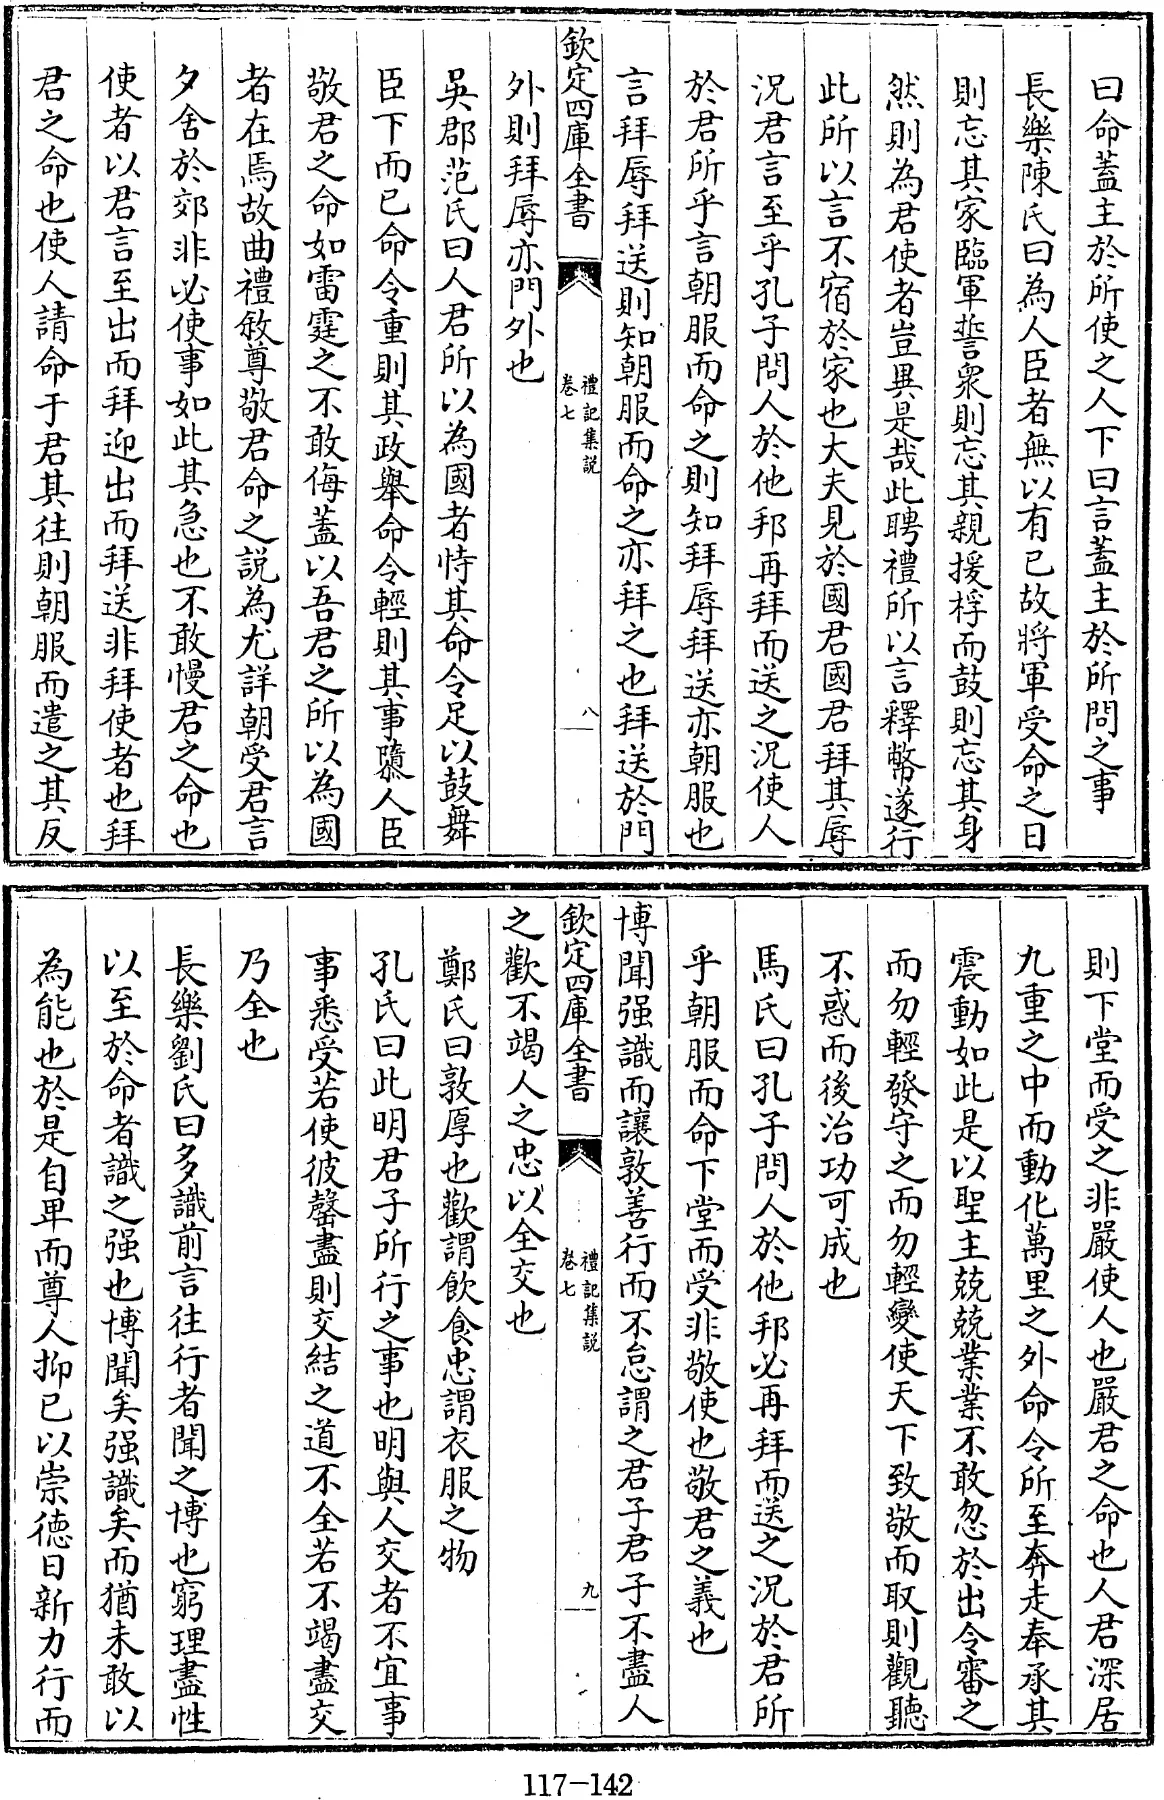 曰命蓋主於所使之人下曰言蓋主於所問之事
長樂陳氏曰為人臣者無以有已故將軍受命之日
則忘其家臨軍誓衆則忘其親援桴而鼓則忘其身
然則為君使者豈異是哉此聘禮所以言釋幣遂行
此所以言不宿於家也大夫見於國君國君拜其辱
況君言至乎孔子問人於他邦再拜而送之況使人
於君所乎言朝服而命之則知拜辱拜送亦朝服也
言拜辱拜送則知朝服而命之亦拜之也拜送於門
欽定四庫全書
禮記集説
卷七
八
外則拜辱亦門外也
吳郡范氏曰人君所以為國者恃其命令足以鼓舞
臣下而已命令重則其政舉命令輕則其事隳人臣
敬君之命如雷霆之不敢侮蓋以吾君之所以為國
者在焉故曲禮敘尊敬君命之説為尤詳朝受君言
夕舍於郊非必使事如此其急也不敢慢君之命也
使者以君言至出而拜迎出而拜送非拜使者也拜
君之命也使人請命于君其往則朝服而遣之其反
則下堂而受之非嚴使人也嚴君之命也人君深居
九重之中而動化萬里之外命令所至奔走奉承其
震動如此是以聖主兢兢業業不敢忽於出令審之
而勿輕發守之而勿輕變使天下致敬而取則觀聽
不惑而後治功可成也
馬氏曰孔子問人於他邦必再拜而送之況於君所
乎朝服而命下堂而受非敬使也敬君之義也
博聞强識而讓敦善行而不怠謂之君子君子不盡人
欽定四庫全書
禮記集説
卷七
九
之歡不竭人之忠以全交也
鄭氏曰敦厚也歡謂飲食忠謂衣服之物
孔氏曰此明君子所行之事也明與人交者不宜事
事悉受若使彼罄盡則交結之道不全若不竭盡交
乃全也
長樂劉氏曰多識前言往行者聞之博也窮理盡性
以至於命者識之强也博聞矣强識矣而猶未敢以
為能也於是自卑而尊人抑已以崇德日新力行而
117-142